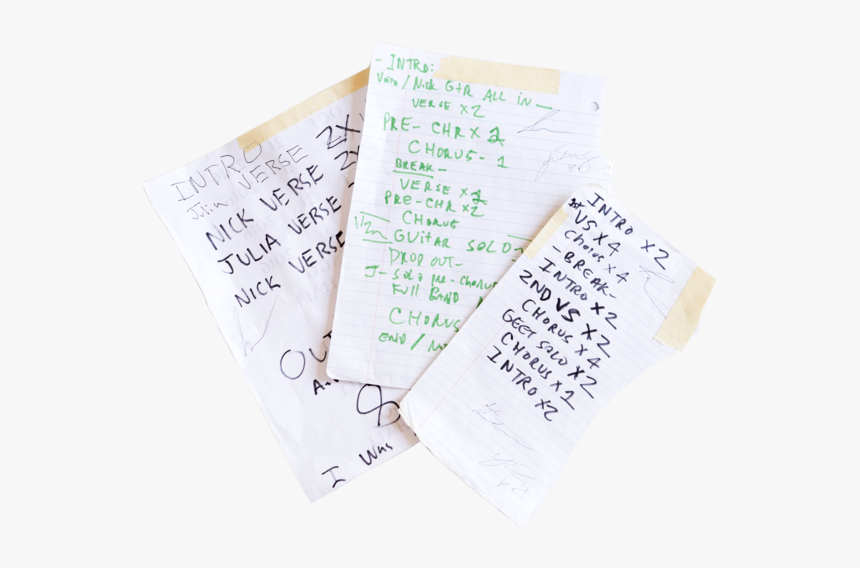 INTRO
Julia VERSE 2X
NICK VERSE 2X
JULIA VERSE
NICK VERSE
OUT
I was
- INTRO:
/ Nick GTR ALL IN —
VERSE X2
PRE- CHR X 2
CHORUS- 1
BREAK-
VERSE X
PRE-CHR X2
CHORUS
GUITAR SOLO-
DROP OUT-
J- SOLO PRE-CHORUS
FULL BAND
CHORUS
END /
INTRO X2
1st VS X4
CHORUS X4
-BREAK-
INTRO X2
2ND VS X2
CHORUS X4
GEET SOLO X2
CHORUS X1
INTRO X2